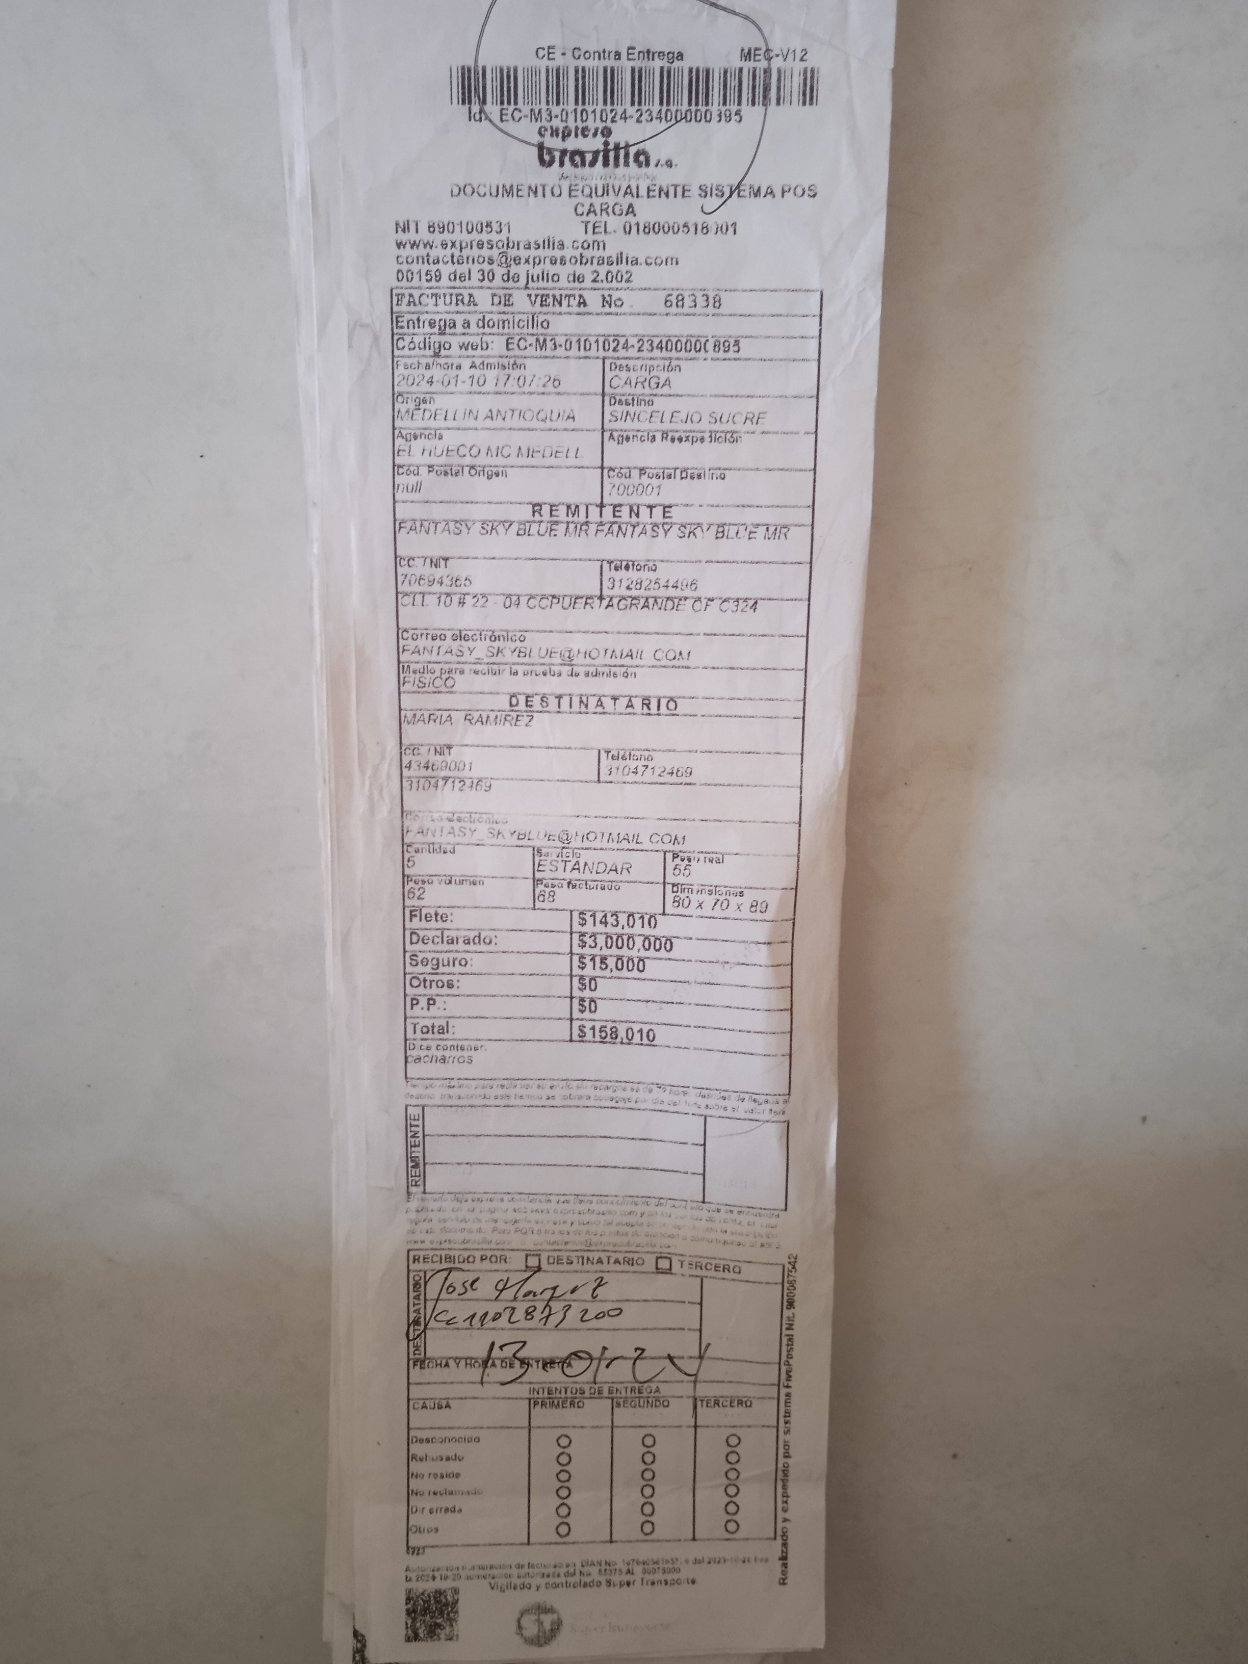 CE - Contra Entrega MEC-V12
Id.: EC-M3-0101024-23400000895
expreso
brasilia s.a.
DOCUMENTO EQUIVALENTE SISTEMA POS
CARGA
NIT 890100531 TEL. 018000518001
www.expresobrasilia.com
contactenos@expresobrasilia.com
00159 del 30 de julio de 2.002
FACTURA DE VENTA No. 68338
Entrega a domicilio
Código web: EC-M3-0101024-23400000895
Fecha/hora Admisión Descripción
2024-01-10 17:07:26 CARGA
Origen Destino
MEDELLIN ANTIOQUIA SINCELEJO SUCRE
Agencia Agencia Reexpedición
EL HUECO MC MEDELL
Cód. Postal Origen Cód. Postal Destino
null 700001
REMITENTE
FANTASY SKY BLUE MR FANTASY SKY BLUE MR
CC. / NIT Teléfono
70694365 3128254496
CLL 10 # 22 - 04 CCPUERTAGRANDE OF C324
Correo electrónico
FANTASY_SKYBLUE@HOTMAIL.COM
Medio para recibir la prueba de admisión
FISICO
DESTINATARIO
MARIA RAMIREZ
CC. / NIT Teléfono
43469001 3104712469
3104712469
Correo electrónico
FANTASY_SKYBLUE@HOTMAIL.COM
Cantidad Servicio Peso real
5 ESTANDAR 55
Peso volumen Peso facturado Dimensiones
62 68 80 x 70 x 89
Flete: $143,010
Declarado: $3,000,000
Seguro: $15,000
Otros: $0
P.P.: $0
Total: $158,010
Dice contener:
cacharros
REMITENTE
RECIBIDO POR: DESTINATARIO TERCERO
DESTINATARIO
Jose
cc 1102873200
13-01-24
FECHA Y HORA DE ENTREGA
INTENTOS DE ENTREGA
CAUSA PRIMERO SEGUNDO TERCERO
Desconocido
Rehusado
No reside
No reclamado
Dir errada
Otros
Vigilado y controlado Super Transporte
Realizado y expedido por sistema FivePostal Nit. 900087542